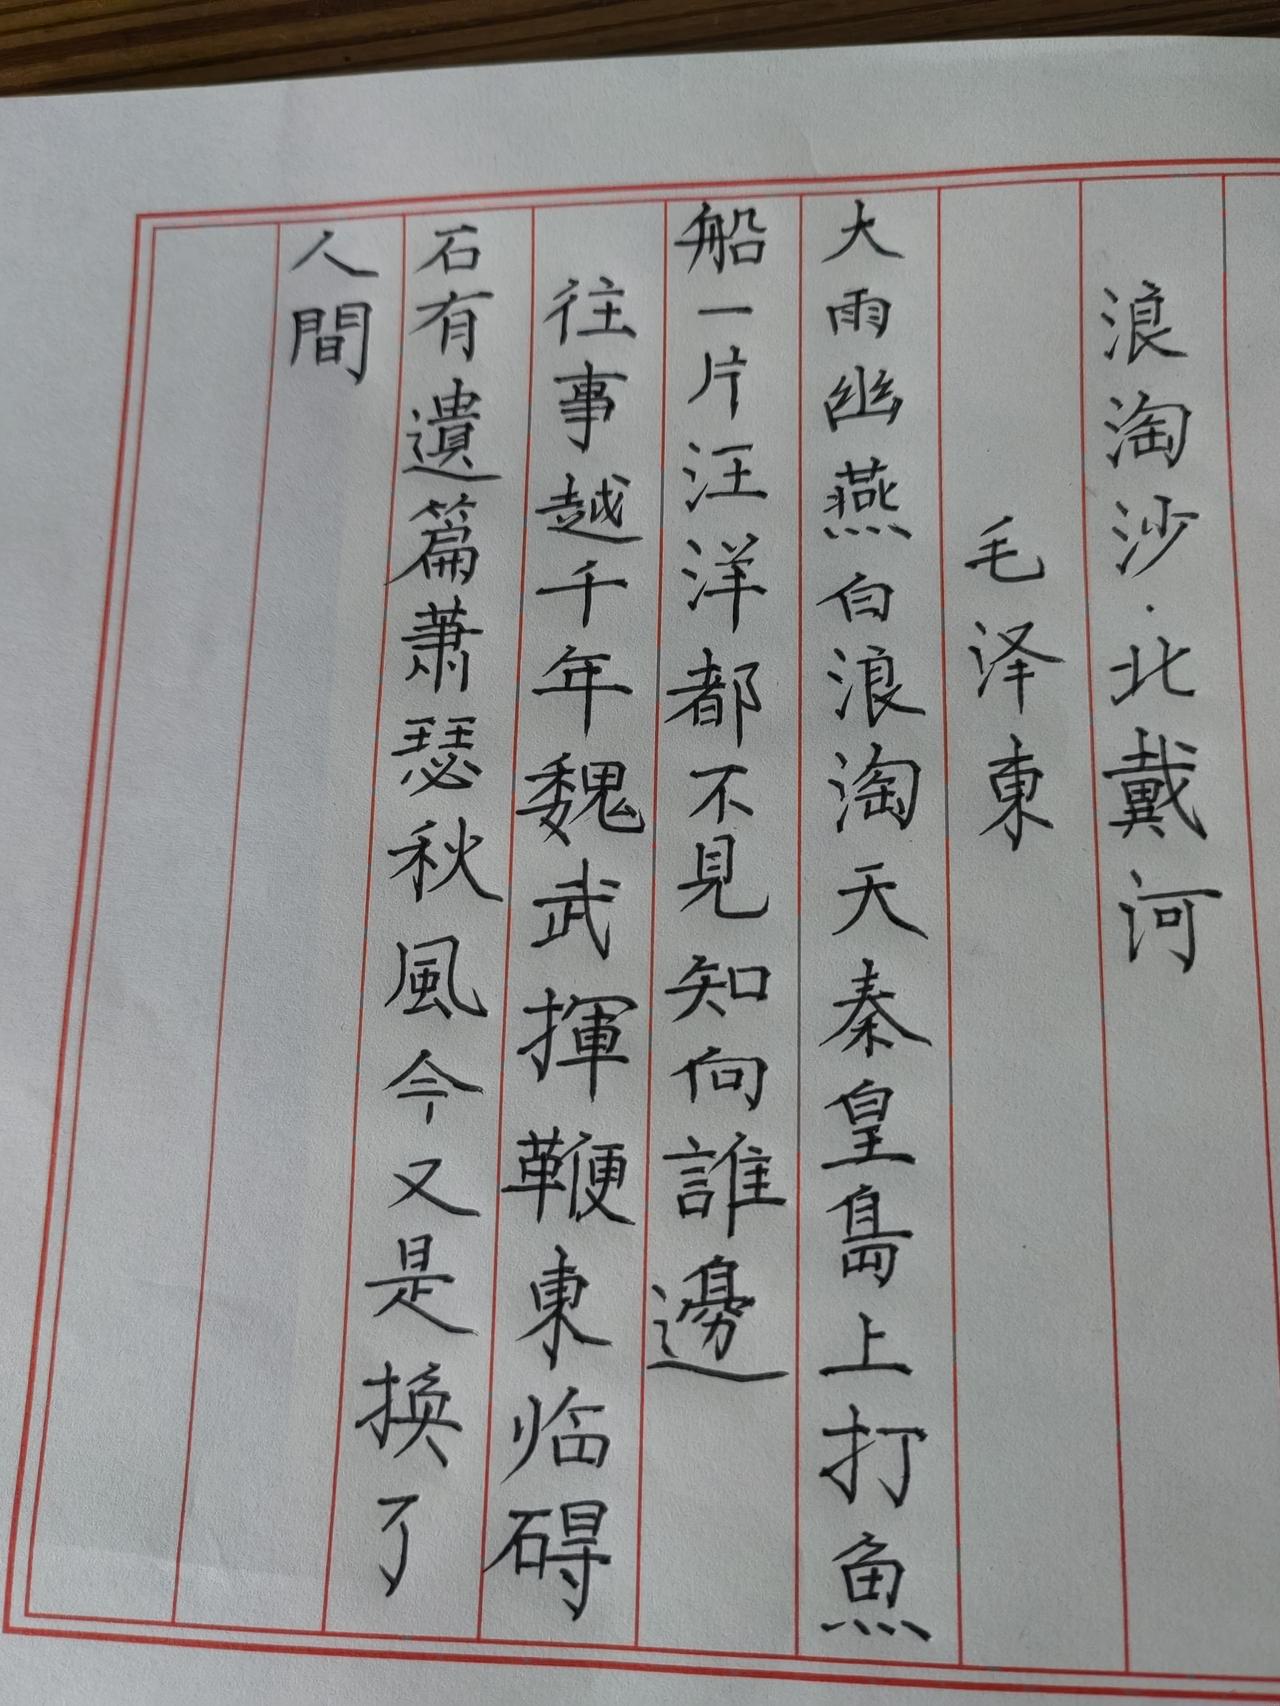 浪淘沙·北戴河
毛泽東
大雨幽燕白浪淘天秦皇島上打魚
船一片汪洋都不見知向誰邊
往事越千年魏武揮鞭東临碍
石有遺篇蕭瑟秋風今又是换了
人間